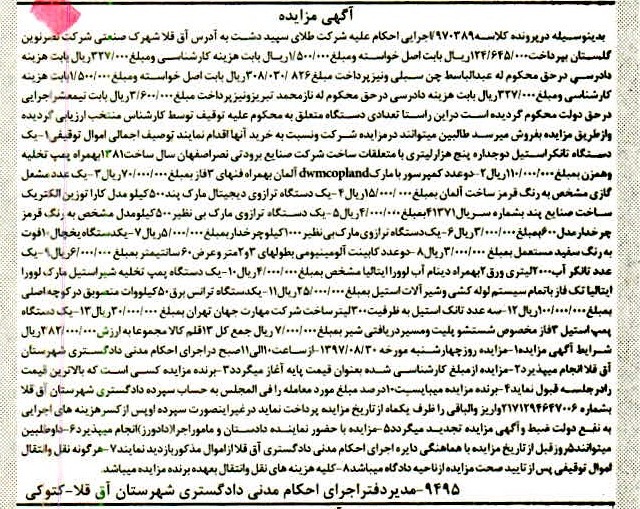 آگهی مزایده
بدینوسیله در پرونده کلاسه ۹۷۰۳۸۹/اجرایی احکام علیه شرکت طلای سپید دشت به آدرس آق قلا شهرک صنعتی شرکت نصر نوین
گلستان بپرداخت ۱۲۴/۶۴۵/۰۰۰ ریال بابت اصل خواسته ومبلغ ۱/۵۰۰/۰۰۰ ریال بابت هزینه کارشناسی ومبلغ ۳۲۷/۰۰۰ ریال بابت هزینه
دادرسی درحق محکوم له عبدالباسط چن سبلی ونیز پرداخت مبلغ ۳۰۸/۰۳۰/۸۲۶ ریال بابت اصل خواسته ومبلغ ۱/۵۰۰/۰۰۰ بابت هزینه
کارشناسی ومبلغ ۳۲۷/۰۰۰ ریال بابت هزینه دادرسی درحق محکوم له نازمحمد تبریزونیز پرداخت مبلغ ۳/۶۰۰/۰۰۰ ریال بابت نیمعشراجرایی
درحق دولت محکوم گردیده است دراین راستا تعدادی دستگاه متعلق به محکوم علیه توقیف توسط کارشناس منتخب ارزیابی گردیده
وازطریق مزایده بفروش میرسد طالبین میتوانند درمزایده شرکت ونسبت به خرید آنها اقدام نمایند توصیف اجمالی اموال توقیفی ۱-یک
دستگاه تانکر استیل دوجداره پنج هزارلیتری با متعلقات ساخت شرکت صنایع برودتی نصر اصفهان سال ساخت ۱۳۸۱ بهمراه پمپ تخلیه
وهمزن بمبلغ ۱۱۰/۰۰۰/۰۰۰ ریال ۲-دوعدد کمپرسور با مارک dwmcopland آلمان بهمراه فنهای ۳فاز بمبلغ ۷۰/۰۰۰/۰۰۰ ریال ۳-یک عدد مشعل
گازی مشخص به رنگ قرمز ساخت آلمان بمبلغ ۱۵/۰۰۰/۰۰۰ ریال ۴-یک دستگاه ترازوی دیجیتال مارک پند ۵۰۰ کیلو مدل کارا توزین الکتریک
ساخت صنایع پند بشماره سریال ۴۱۳۷۱ بمبلغ ۴/۰۰۰/۰۰۰ ریال ۵-یک دستگاه ترازوی مارک بی نظیر ۵۰۰ کیلو مدل مشخص به رنگ قرمز
چرخدار مدل ۶۰۰ بمبلغ ۳/۰۰۰/۰۰۰ ریال ۶-یک دستگاه ترازوی مارک بی نظیر ۱۰۰۰ کیلو چرخدار بمبلغ ۵/۰۰۰/۰۰۰ ریال ۷-یکدستگاه یخچال ۱۰فوت
به رنگ سفید مستعمل بمبلغ ۳/۰۰۰/۰۰۰ ریال ۸-دوعدد کابینت آلومینیومی بطولهای ۳و۲متر وعرض ۶۰سانتیمتر بمبلغ ۶/۰۰۰/۰۰۰ ریال ۹-یک
عدد تانکر آب ۲۰۰۰ لیتری ورق ۲ بهمراه دینام آب لوورا ایتالیا مشخص بمبلغ ۴/۰۰۰/۰۰۰ ریال ۱۰-یک دستگاه پمپ تخلیه شیراستیل مارک لوورا
ایتالیا تک فاز با تمام سیستم لوله کشی وشیرآلات استیل بمبلغ ۲۵/۰۰۰/۰۰۰ ریال ۱۱-یکدستگاه ترانس برق ۵۰ کیلووات منصوب درکوچه اصلی
بمبلغ ۱۰۰/۰۰۰/۰۰۰ ریال ۱۲-سه عدد تانک استیل به ظرفیت ۳۰۰ لیتر ساخت شرکت مهارت جهان تهران بمبلغ ۳۰/۰۰۰/۰۰۰ ریال ۱۳-یک دستگاه
پمپ استیل ۳فاز مخصوص شستشو پلیت ومسیر دریافتی شیر بمبلغ ۷/۰۰۰/۰۰۰ ریال جمع کل ۱۳ قلم کالا مجموعا به ارزش ۳۸۲/۰۰۰/۰۰۰ ریال
شرایط آگهی مزایده: ۱-مزایده روزچهارشنبه مورخه ۱۳۹۷/۰۸/۳۰-ازساعت ۱۰ الی ۱۱ صبح دراجرای احکام مدنی دادگستری شهرستان
آق قلا انجام میپذیرد ۲-مزایده ازمبلغ کارشناسی شده بعنوان قیمت پایه آغاز میگردد ۳-برنده مزایده کسی است که بالاترین قیمت
رادرجلسه قبول نماید ۴-برنده مزایده میبایست ۱۰درصد مبلغ مورد معامله را فی المجلس به حساب سپرده دادگستری شهرستان آق قلا
بشماره ۲۱۷۱۲۹۴۶۴۷۰۰۶ واریز والباقی را ظرف یکماه ازتاریخ مزایده پرداخت نماید درغیراینصورت سپرده اوپس از کسرهزینه های اجرایی
به نفع دولت ضبط وآگهی مزایده تجدید میگردد ۵-مزایده با حضور نماینده دادستان و ماموراجرا(دادورز)انجام میپذیرد ۶-داوطلبین
میتوانند ۵روز قبل از تاریخ مزایده با هماهنگی دایره اجرای احکام مدنی دادگستری آق قلا ازاموال مذکوربازدید نمایند ۷-هرگونه نقل وانتقال
اموال توقیفی پس از تایید صحت مزایده ازناحیه دادگاه میباشد ۸-کلیه هزینه های نقل وانتقال بعهده برنده مزایده میباشد.
۹۴۹۵-مدیردفتراجرای احکام مدنی دادگستری شهرستان آق قلا-کتوکی